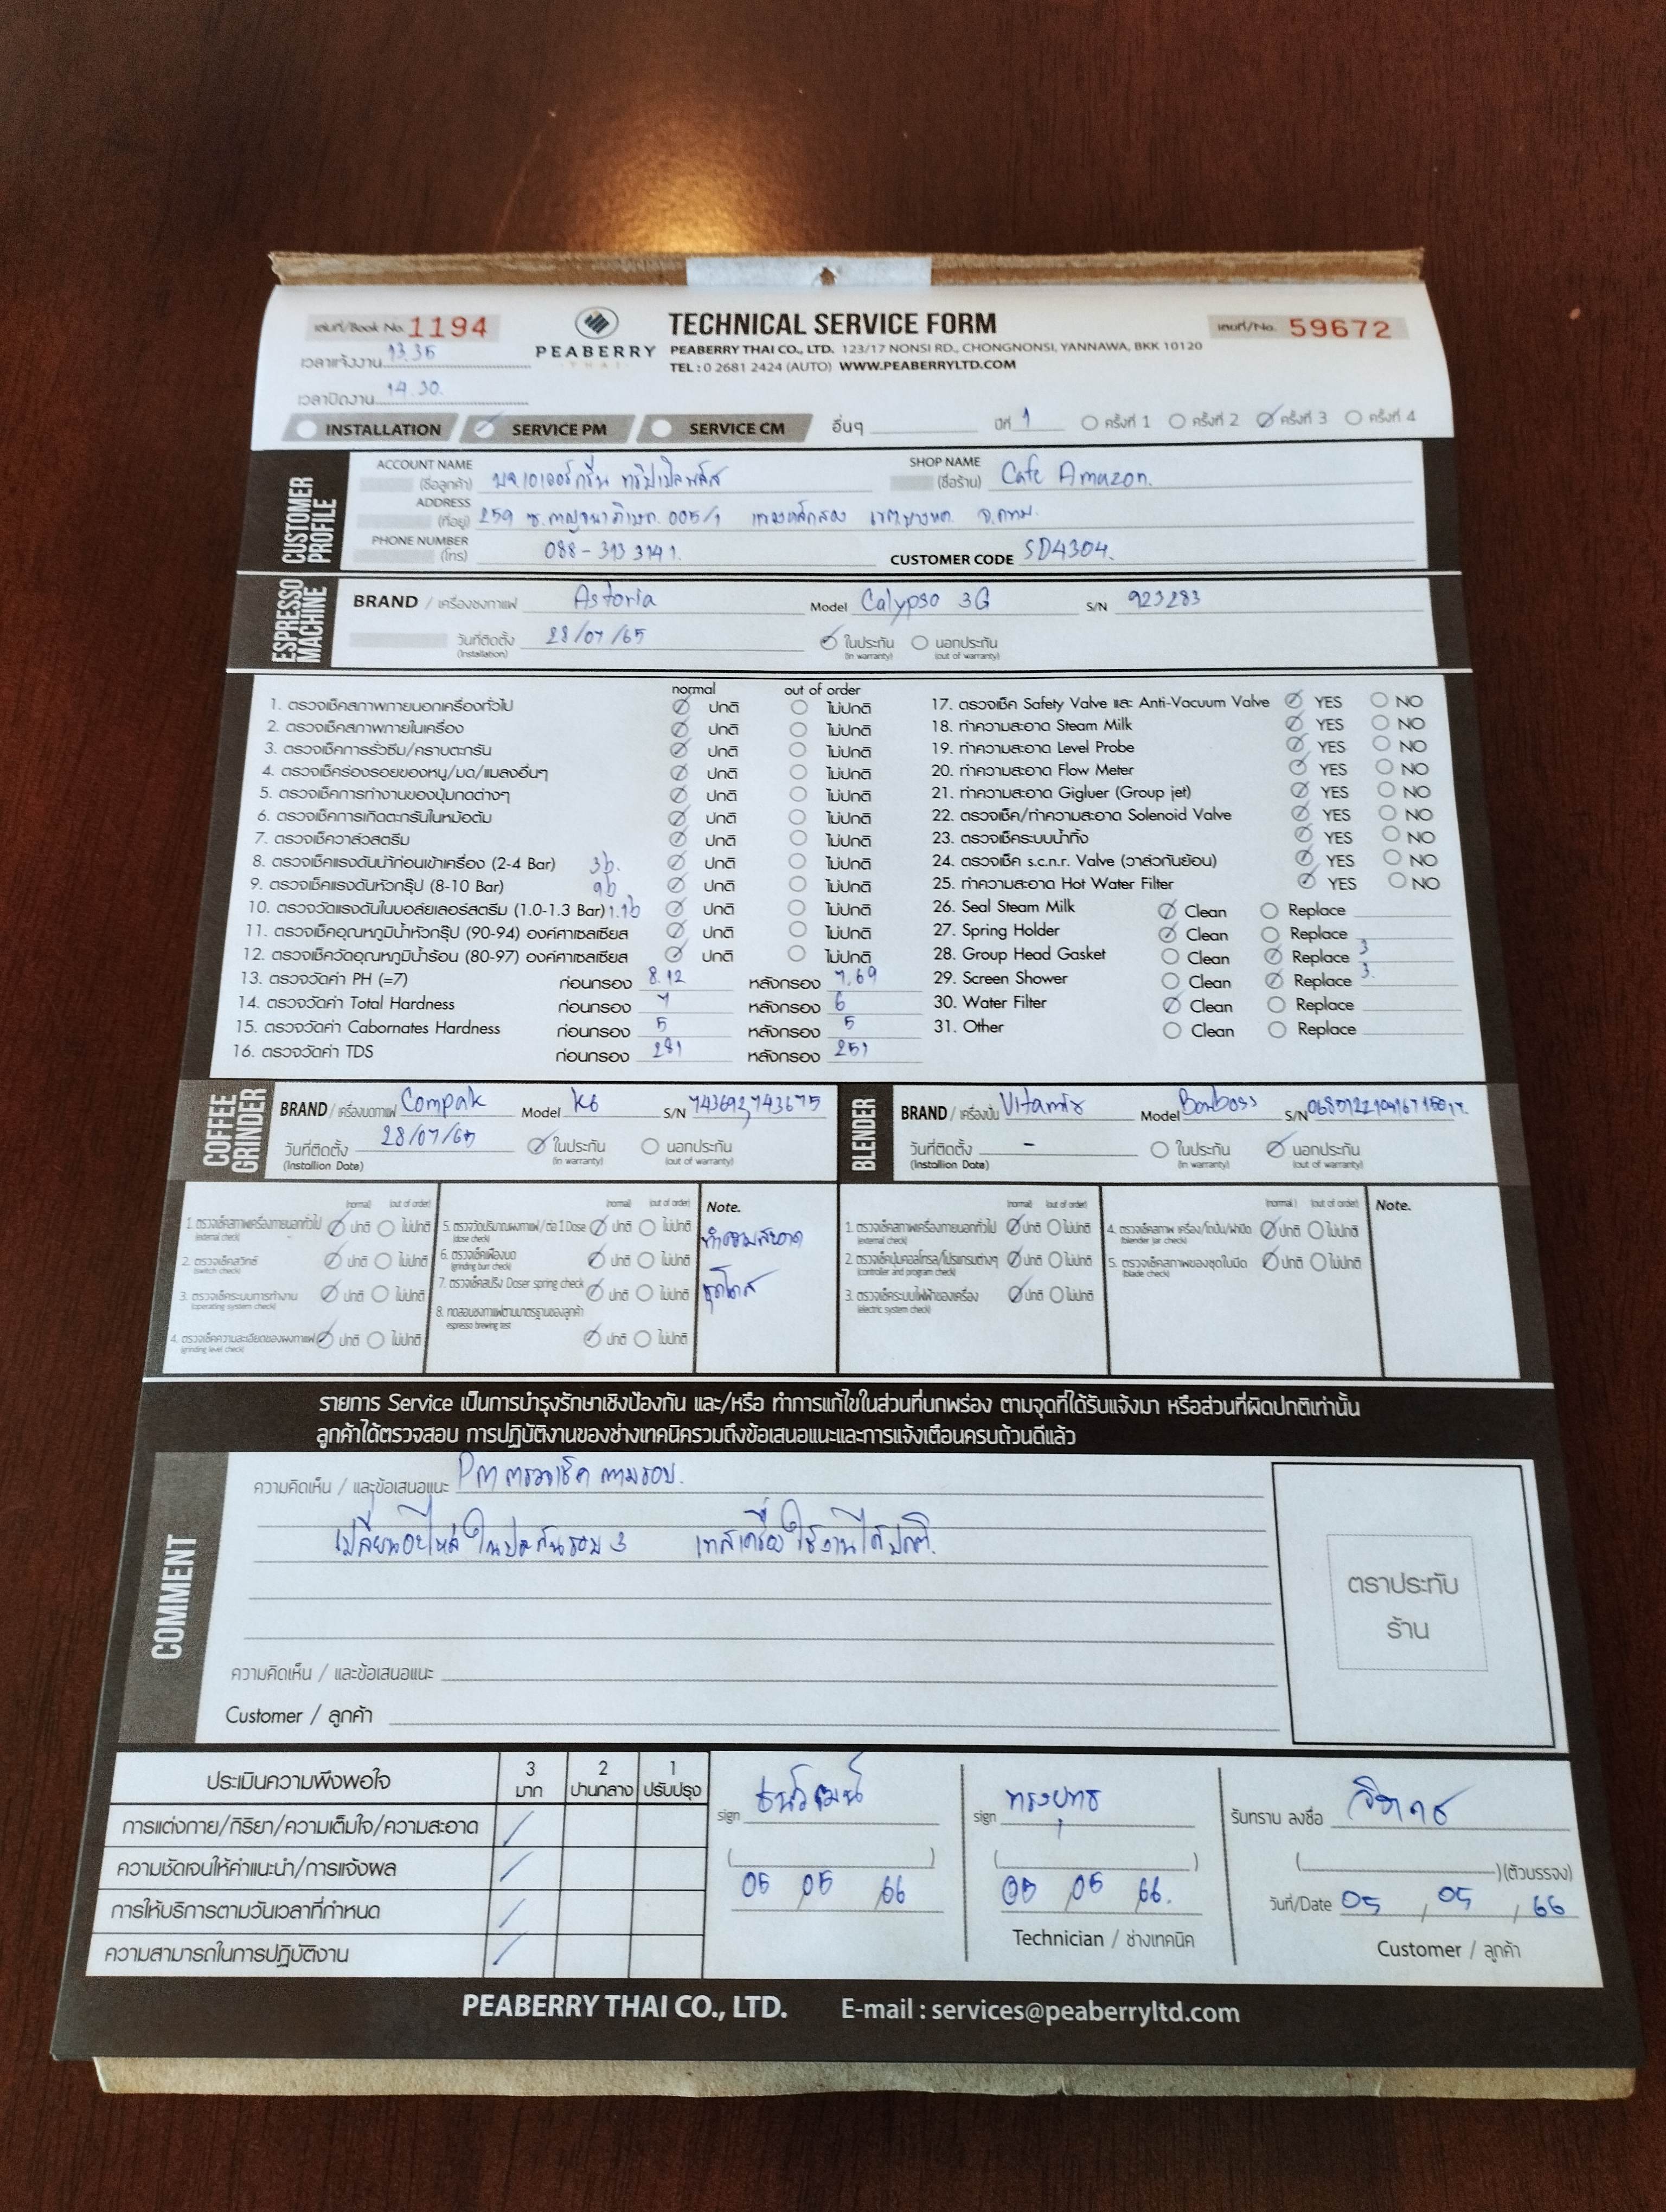 เล่มที่/Book No. 1194
เลขที่/No. 59672
PEABERRY
THAI
TECHNICAL SERVICE FORM
PEABERRY THAI CO., LTD. 123/17 NONSI RD., CHONGNONSI, YANNAWA, BKK 10120
TEL : 0 2681 2424 (AUTO) WWW.PEABERRYLTD.COM
เวลาแจ้งงาน 13.35
เวลาปิดงาน 14.30.
INSTALLATION SERVICE PM SERVICE CM อื่นๆ ปีที่ 1 ครั้งที่ 1 ครั้งที่ 2 ครั้งที่ 3 ครั้งที่ 4
CUSTOMER PROFILE
ACCOUNT NAME (ชื่อลูกค้า)
SHOP NAME (ชื่อร้าน) Cafe Amazon.
ADDRESS (ที่อยู่) 259 ซ.กาญจนาภิเษก 005/1 จ.กทม.
PHONE NUMBER (โทร) 088-313 3141.
CUSTOMER CODE SD4304.
ESPRESSO MACHINE
BRAND / เครื่องชงกาแฟ Astoria Model Calypso 3G S/N 923283
วันที่ติดตั้ง (Installation) 28/07/65 ในประกัน (in warranty) นอกประกัน (out of warranty)
normal out of order
1. ตรวจเช็คสภาพภายนอกเครื่องทั่วไป ปกติ ไม่ปกติ
2. ตรวจเช็คสภาพภายในเครื่อง ปกติ ไม่ปกติ
3. ตรวจเช็คการรั่วซึม/คราบตะกรัน ปกติ ไม่ปกติ
4. ตรวจเช็คร่องรอยของหนู/มด/แมลงอื่นๆ ปกติ ไม่ปกติ
5. ตรวจเช็คการทำงานของปุ่มกดต่างๆ ปกติ ไม่ปกติ
6. ตรวจเช็คการเกิดตะกรันในหม้อต้ม ปกติ ไม่ปกติ
7. ตรวจเช็ควาล์วสตรีม ปกติ ไม่ปกติ
8. ตรวจเช็คแรงดันน้ำก่อนเข้าเครื่อง (2-4 Bar) 3b. ปกติ ไม่ปกติ
9. ตรวจเช็คแรงดันหัวกรุ๊ป (8-10 Bar) 9b ปกติ ไม่ปกติ
10. ตรวจวัดแรงดันในบอล์ยเลอร์สตรีม (1.0-1.3 Bar) 1.1b ปกติ ไม่ปกติ
11. ตรวจเช็คอุณหภูมิน้ำหัวกรุ๊ป (90-94) องศ์ศาเซลเซียส ปกติ ไม่ปกติ
12. ตรวจเช็ควัดอุณหภูมิน้ำร้อน (80-97) องศ์ศาเซลเซียส ปกติ ไม่ปกติ
13. ตรวจวัดค่า PH (=7) ก่อนกรอง 8.12 หลังกรอง 7.69
14. ตรวจวัดค่า Total Hardness ก่อนกรอง 7 หลังกรอง 6
15. ตรวจวัดค่า Cabornates Hardness ก่อนกรอง 5 หลังกรอง 5
16. ตรวจวัดค่า TDS ก่อนกรอง 281 หลังกรอง 251
17. ตรวจเช็ค Safety Valve และ Anti-Vacuum Valve YES NO
18. ทำความสะอาด Steam Milk YES NO
19. ทำความสะอาด Level Probe YES NO
20. ทำความสะอาด Flow Meter YES NO
21. ทำความสะอาด Gigluer (Group jet) YES NO
22. ตรวจเช็ค/ทำความสะอาด Solenoid Valve YES NO
23. ตรวจเช็คระบบน้ำทิ้ง YES NO
24. ตรวจเช็ค s.c.n.r. Valve (วาล์วกันย้อน) YES NO
25. ทำความสะอาด Hot Water Filter YES NO
26. Seal Steam Milk Clean Replace
27. Spring Holder Clean Replace
28. Group Head Gasket Clean Replace 3
29. Screen Shower Clean Replace 3.
30. Water Filter Clean Replace
31. Other Clean Replace
COFFEE GRINDER
BRAND / เครื่องบดกาแฟ Compak Model K6 S/N 743692,743675
วันที่ติดตั้ง (Installion Date) 28/07/65 ในประกัน (in warranty) นอกประกัน (out of warranty)
BLENDER
BRAND / เครื่องปั่น Vitamix Model S/N
วันที่ติดตั้ง (Installion Date) - ในประกัน (in warranty) นอกประกัน (out of warranty)
(normal) (out of order)
1. ตรวจเช็คสภาพเครื่องภายนอกทั่วไป ปกติ ไม่ปกติ
(external check)
2. ตรวจเช็คสวิทซ์ ปกติ ไม่ปกติ
(switch check)
3. ตรวจเช็คระบบการทำงาน ปกติ ไม่ปกติ
(operating system check)
4. ตรวจเช็คความละเอียดของผงกาแฟ ปกติ ไม่ปกติ
(grinding level check)
(normal) (out of order)
5. ตรวจวัดปริมาณผงกาแฟ/ต่อ 1 Dose ปกติ ไม่ปกติ
(dose check)
6. ตรวจเช็คเฟืองบด ปกติ ไม่ปกติ
(grinding burr check)
7. ตรวจเช็คสปริง Doser spring check ปกติ ไม่ปกติ
8. ทดสอบชงกาแฟตามมาตรฐานของลูกค้า
espresso brewing test ปกติ ไม่ปกติ
Note.
ทำความสะอาด
ชุดโดส
(normal) (out of order)
1. ตรวจเช็คสภาพเครื่องภายนอกทั่วไป ปกติ ไม่ปกติ
(external check)
2. ตรวจเช็คปุ่มคอลโทรล/โปรแกรมต่างๆ ปกติ ไม่ปกติ
(controller and program check)
3. ตรวจเช็คระบบไฟฟ้าของเครื่อง ปกติ ไม่ปกติ
(electric system check)
(normal) (out of order)
4. ตรวจเช็คสภาพ เครื่อง/โถปั่น/ฝาปิด ปกติ ไม่ปกติ
(blender jar check)
5. ตรวจเช็คสภาพของชุดใบมีด ปกติ ไม่ปกติ
(blade check)
Note.
รายการ Service เป็นการบำรุงรักษาเชิงป้องกัน และ/หรือ ทำการแก้ไขในส่วนที่บกพร่อง ตามจุดที่ได้รับแจ้งมา หรือส่วนที่ผิดปกติเท่านั้น
ลูกค้าได้ตรวจสอบ การปฏิบัติงานของช่างเทคนิครวมถึงข้อเสนอแนะและการแจ้งเตือนครบถ้วนดีแล้ว
COMMENT
ความคิดเห็น / และข้อเสนอแนะ PM ตรวจเช็ค ตามรอบ.
เปลี่ยนอะไหล่ ในประกันรอบ 3 เทสเครื่อง ใช้งานได้ปกติ.
ความคิดเห็น / และข้อเสนอแนะ
Customer / ลูกค้า
ตราประทับ
ร้าน
ประเมินความพึงพอใจ 3 มาก 2 ปานกลาง 1 ปรับปรุง
การแต่งกาย/กิริยา/ความเต็มใจ/ความสะอาด
ความชัดเจนให้คำแนะนำ/การแจ้งผล
การให้บริการตามวันเวลาที่กำหนด
ความสามารถในการปฏิบัติงาน
sign ธนวัฒน์
05 05 66
sign ทรงยุทธ
05 05 66.
Technician / ช่างเทคนิค
รับทราบ ลงชื่อ
(ตัวบรรจง)
วันที่/Date 05 , 05 , 66
Customer / ลูกค้า
PEABERRY THAI CO., LTD. E-mail : services@peaberryltd.com